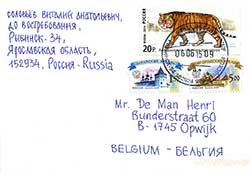 Соловьёв Виталий Анатольевич,
до востребования,
Рыбинск-34,
Ярославская область,
152934, Россия-Russia
РОССИЯ
20
06 06 15 09
Mr. De Man Henri
Bunderstraat 60
B-1745 Opwijk
BELGIUM - БЕЛЬГИЯ